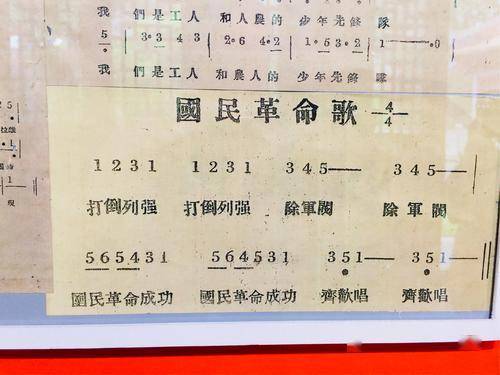 我 們是工人 和人農的 少年先鋒 隊
5 | 3·3 4 3 | 2·6 4·2 | 1·5 3 2 | 1——·0
我 們是工人 和農人的 少年先鋒 隊
國民革命歌 4/4
1231 1231 345— 345—
打倒列强 打倒列强 除軍閥 除軍閥
565431 564531 351— 351—
國民革命成功 國民革命成功 齊歡唱 齊歡唱